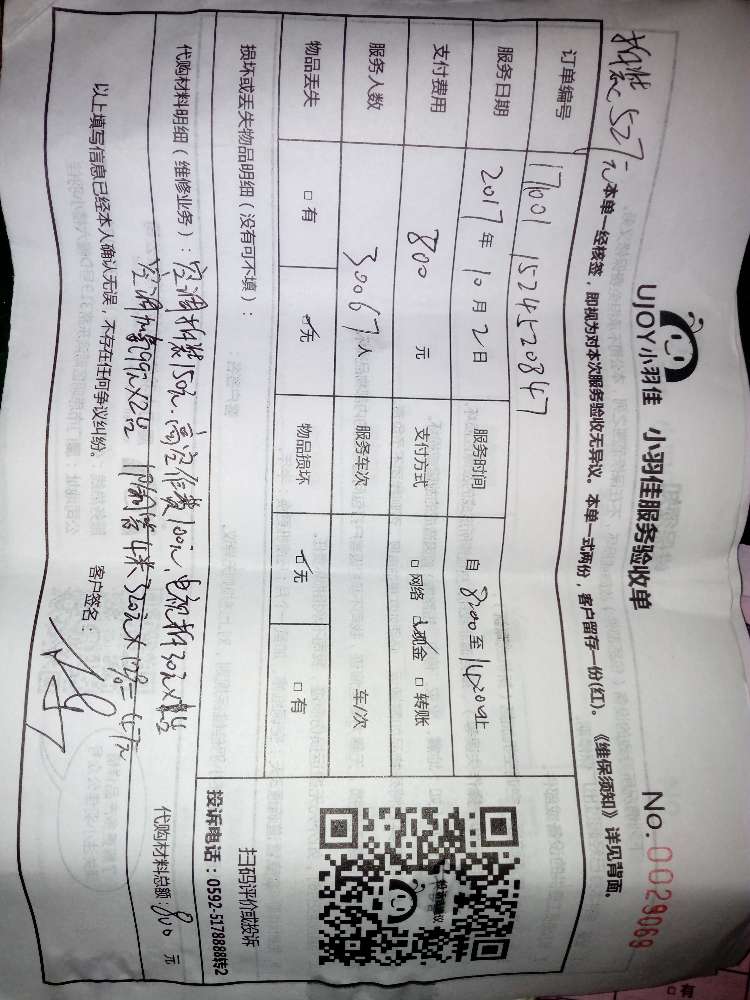 UJOY小羽佳 小羽佳服务验收单 No.0029069
拆装527元
本单一经核签，即视为对本次服务验收无异议。本单一式两份，客户留存一份(红)。《维保须知》详见背面。
订单编号 17001 1524520847
服务日期 2017年10月2日 服务时间 自8:00至14:20止
支付费用 800元 支付方式 □网络 ☑现金 □转账
服务人数 30067人 服务车次 车/次
物品丢失 □有 ☑无 物品损坏 ☑无 □有
损坏或丢失物品明细（没有可不填）：
代购材料明细（维修业务）：空调拆装150元、高空作费100元，电视拆30元
空调加氟99元×2台 铜管4米
代购材料总额：800元
以上填写信息已经本人确认无误，不存在任何争议纠纷。 客户签名：
扫码评价或投诉
投诉电话：0592-5178888转2
□有